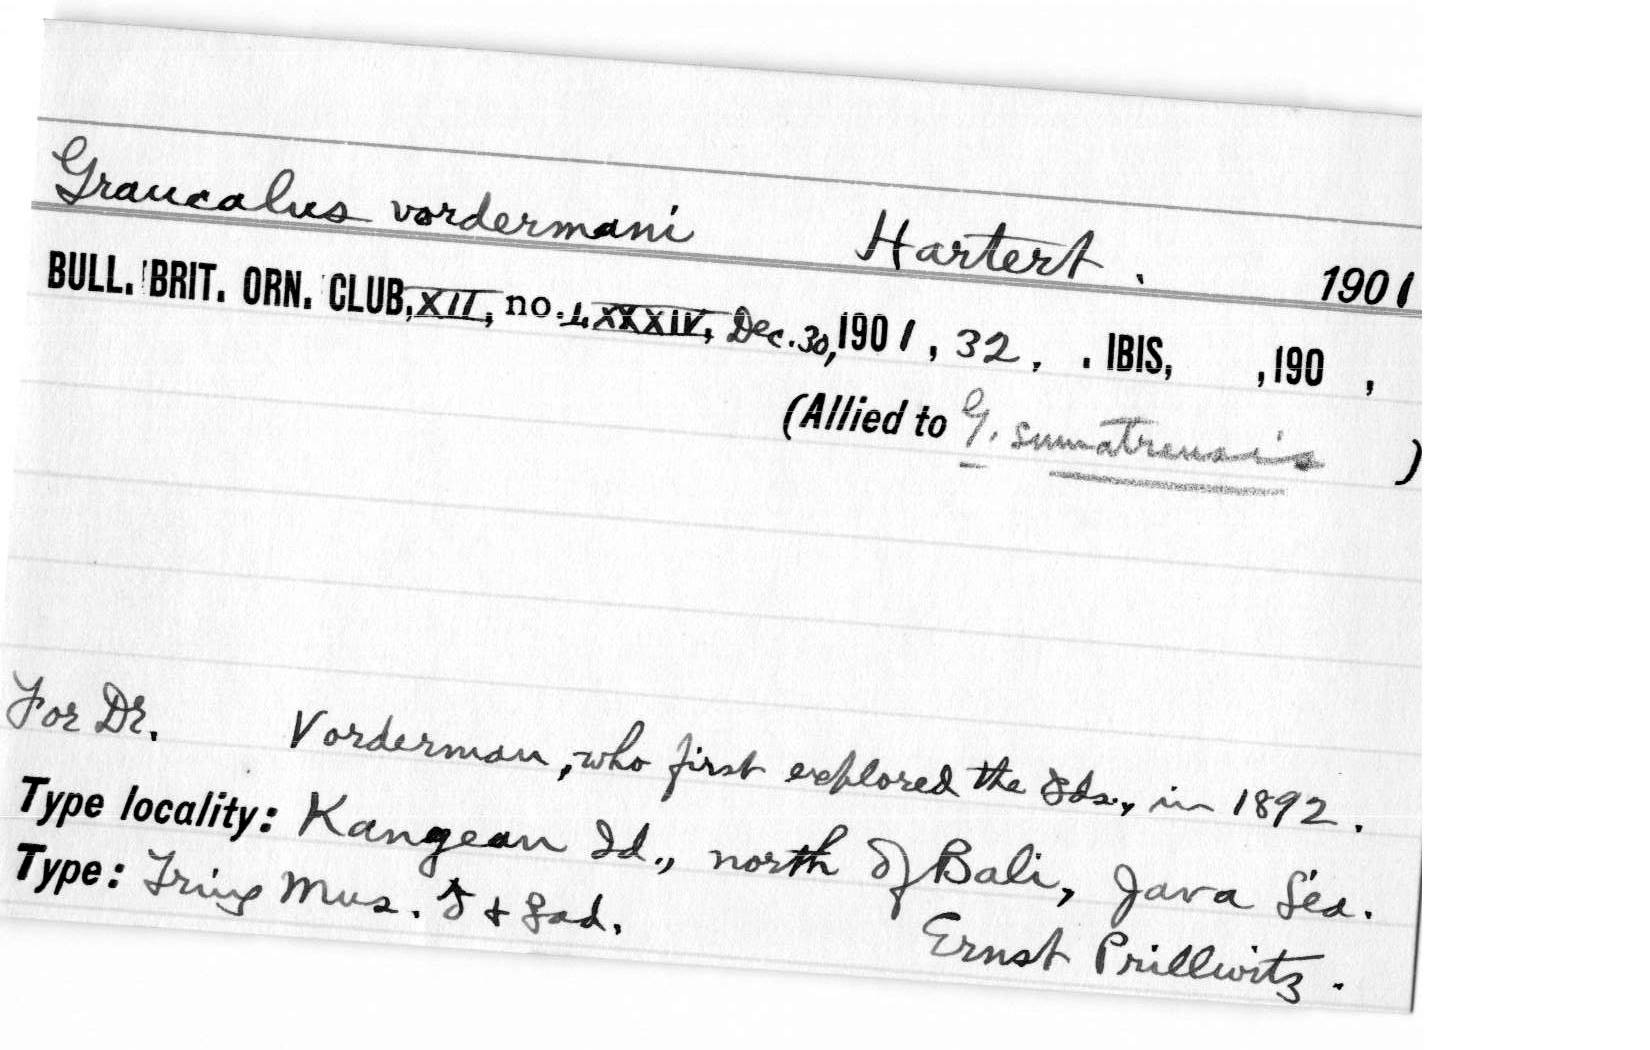 Graucalus vordermani Hartert. 1901
BULL. BRIT. ORN. CLUB, XII, no. LXXXIV, Dec. 30, 1901, 32, . IBIS, , 190 ,
(Allied to G. sumatrensis )
For Dr. Vorderman, who first explored the Ids., in 1892.
Type locality: Kangean Id., north of Bali, Java Sea.
Type: Tring Mus. ♂ + ♀ ad. Ernst Prillwitz.